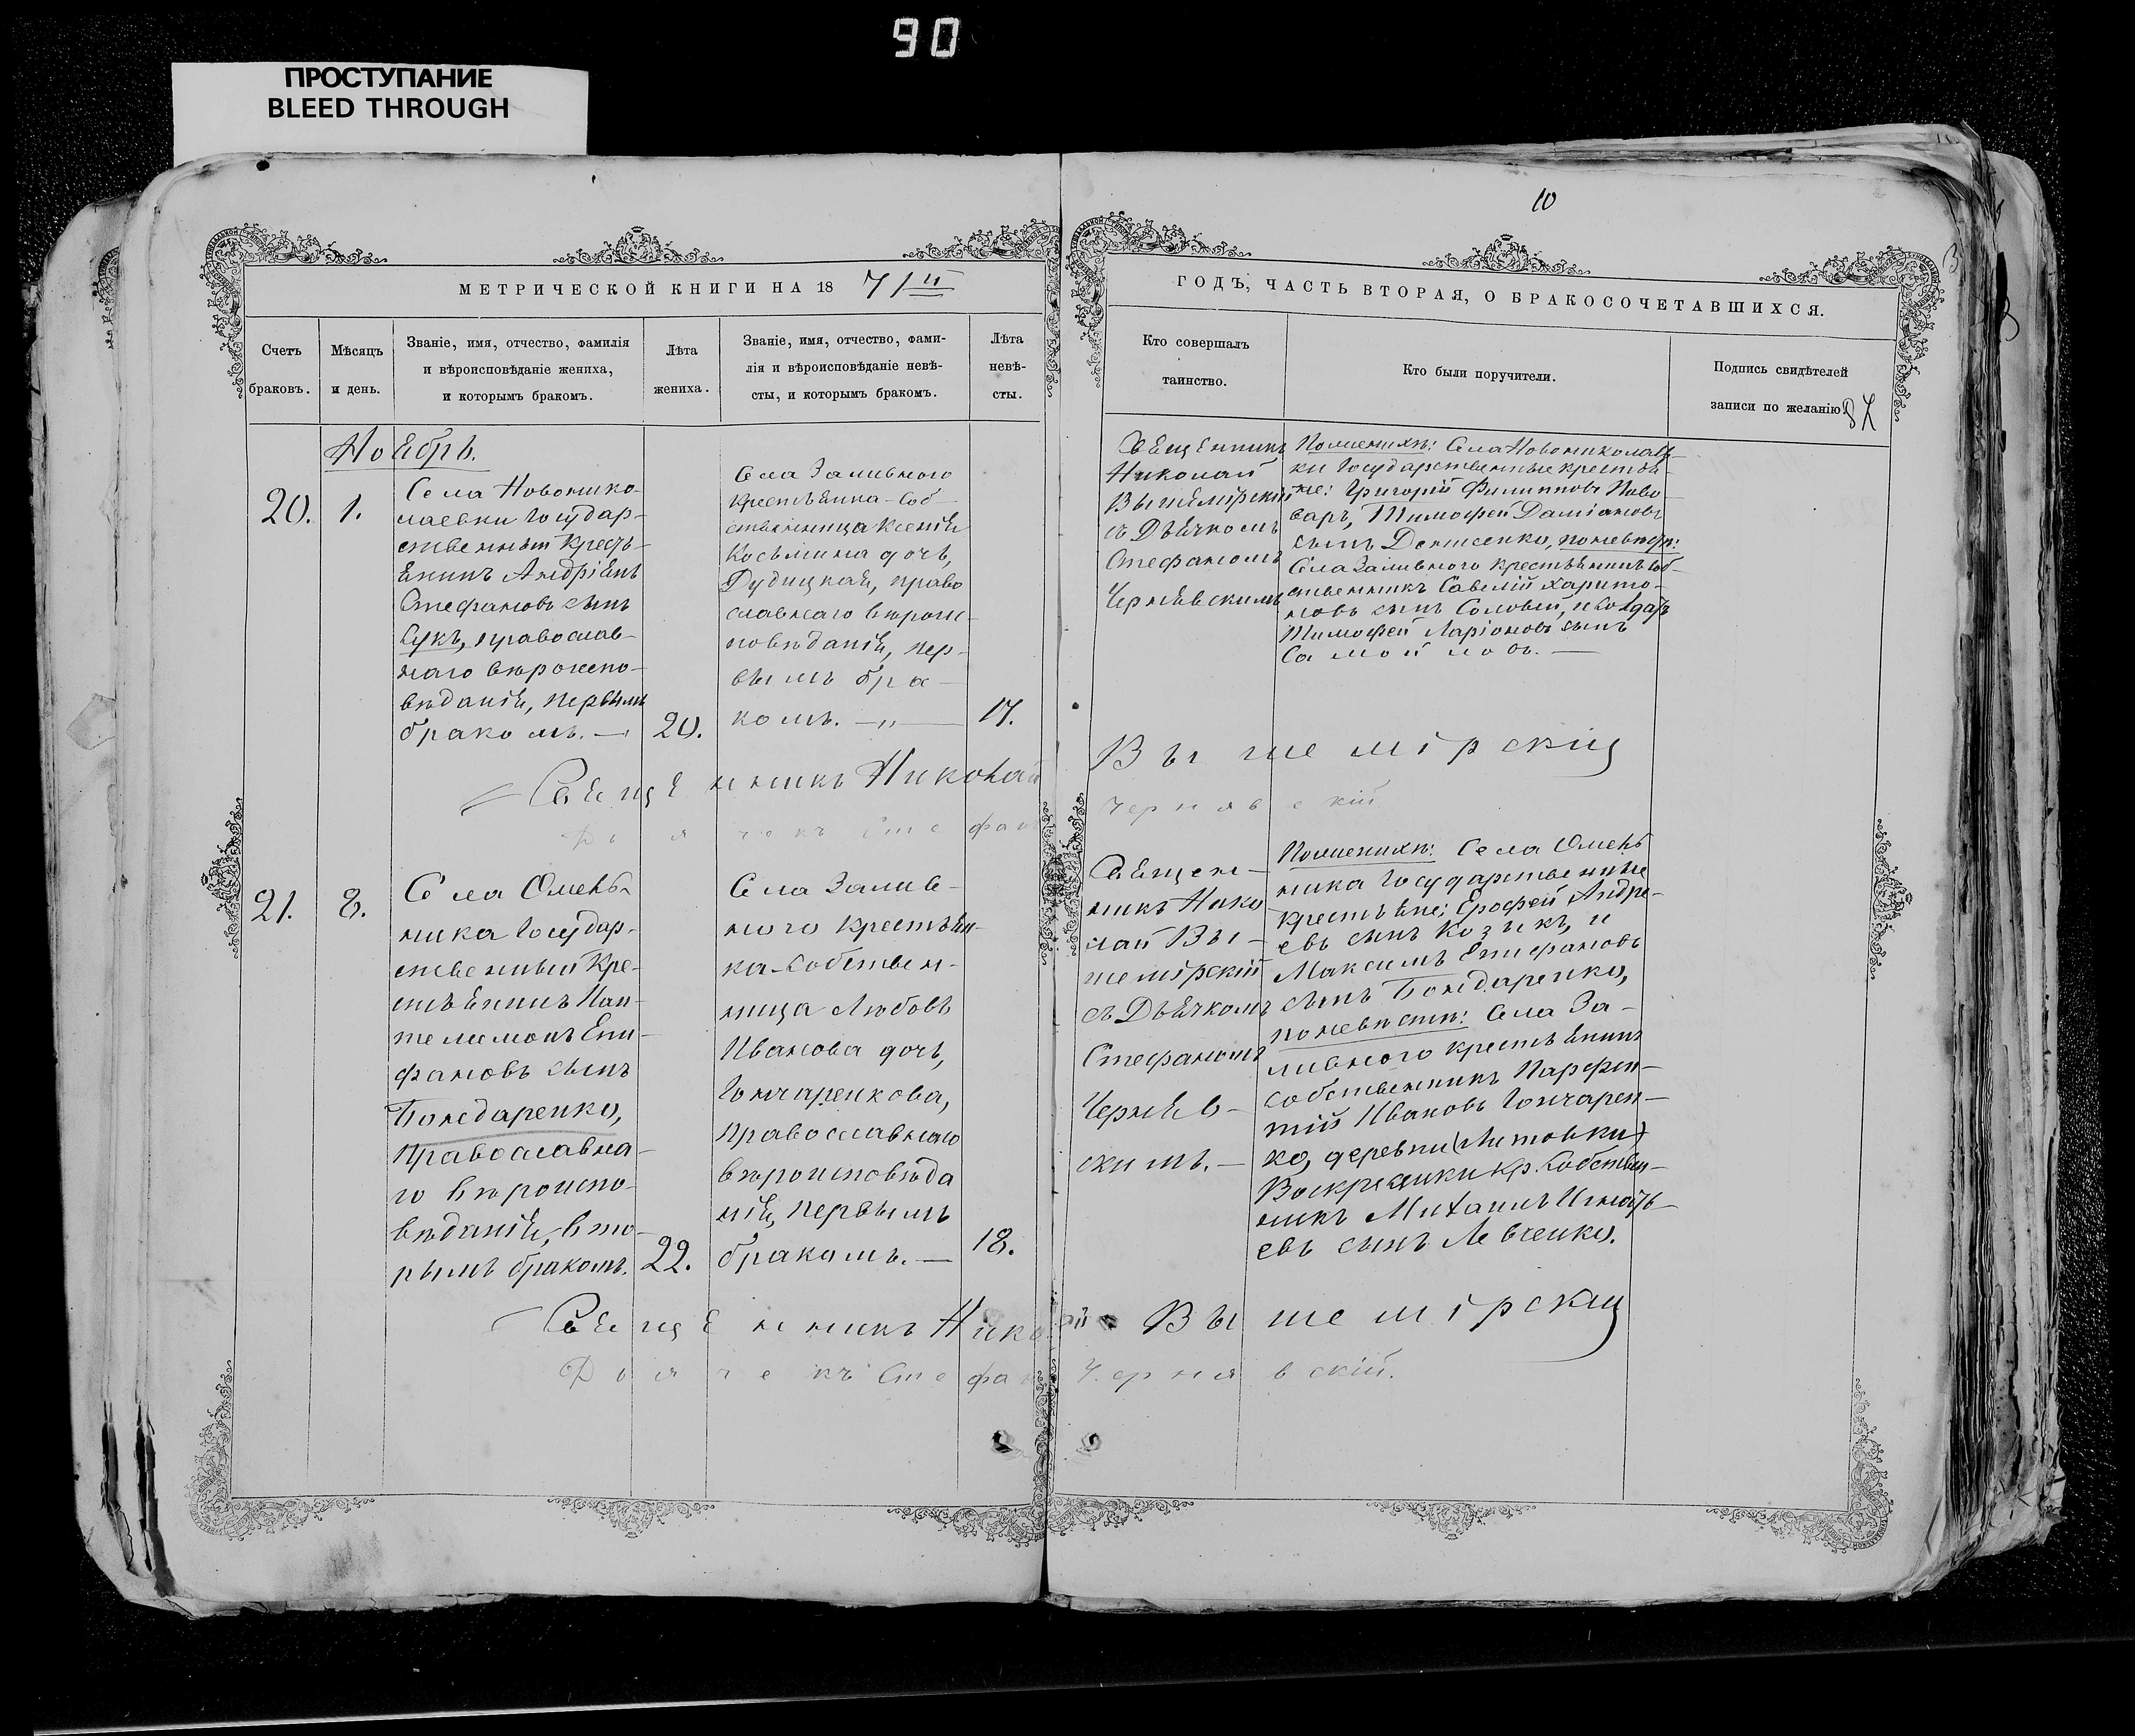 90
ПРОСТУПАНИЕ
BLEED THROUGH
10
МЕТРИЧЕСКОЙ КНИГИ НА 1871
ГОДЪ, ЧАСТЬ ВТОРАЯ, О БРАКОСОЧЕТАВШИХСЯ.
Счетъ браковъ.
Мѣсяцъ и день.
Званіе, имя, отчество, фамилія
и вѣроисповѣданіе жениха,
и которымъ бракомъ.
Лѣта жениха.
Званіе, имя, отчество, фами-
лія и вѣроисповѣданіе невѣ-
сты, и которымъ бракомъ.
Лѣта невѣ-
сты.
Кто совершалъ
таинство.
Кто были поручители.
Подпись свидѣтелей
записи по желанію.
Ноябрь.
20.
1.
Села Новонико-
лаевки Государ-
ственный Кресть-
янинъ Андріянъ
Стефановъ сынъ
Сукъ, православ-
наго вѣроиспо-
вѣданія, первымъ
бракомъ. —
20.
Села Заливного
крестьянка-Соб-
ственница Ксенія
Косьмина дочь,
Рудицкая, право
славнаго вѣроис-
повѣданія, пер-
вымъ бра-
комъ. —„—
17.
Священникъ
Николай
Вышемірскій
съ Дьячкомъ
Стефаномъ
Чернявскимъ
По женихѣ: Села Новониколаев-
ки Государственные крестья-
не: Григорій Филипповъ
Тимофей Даміановъ
сынъ Денисенко, по невѣстѣ:
Села Заливного крестьянинъ соб-
ственникъ Савелій Харито-
новъ сынъ Соловьи, и Солдатъ
Тимофей Ларіоновъ сынъ
Самойловъ. —
Священникъ Николай Вышемірскій
Дьячекъ Стефанъ Чернявскій
21.
8.
Села Омель-
ника Государ-
ственный Кре-
стьянинъ Пан-
телимонъ Епи-
фановъ сынъ
Бондаренко,
Православна-
го вѣроиспо-
вѣданія, вто-
рымъ бракомъ.
22.
Села Залив-
ного крестьян-
ка-Собствен-
ница Любовь
Иванова дочь,
Гончаренкова,
православнаго
вѣроисповѣда
нія, первымъ
бракомъ. —
18.
Священ-
никъ Нико
лай Вы-
шемірскій
съ Дьячкомъ
Стефаномъ
Черняв-
скимъ. —
По женихѣ: Села Омель
ника Государственные
крестьяне: Ерофей Андре-
евъ сынъ Козикъ, и
Максимъ Епифановъ
сынъ Бондаренко,
по невѣстѣ: Села За-
ливного крестьянинъ
собственникъ Парфен-
тій Ивановъ Гончарен-
ко, деревни (Литовки)
Воскресенки кр. Собствен-
никъ Михаилъ Игнать-
евъ сынъ Левченко.
Священникъ Николай Вышемірскій
Дьячекъ Стефанъ Чернявскій.